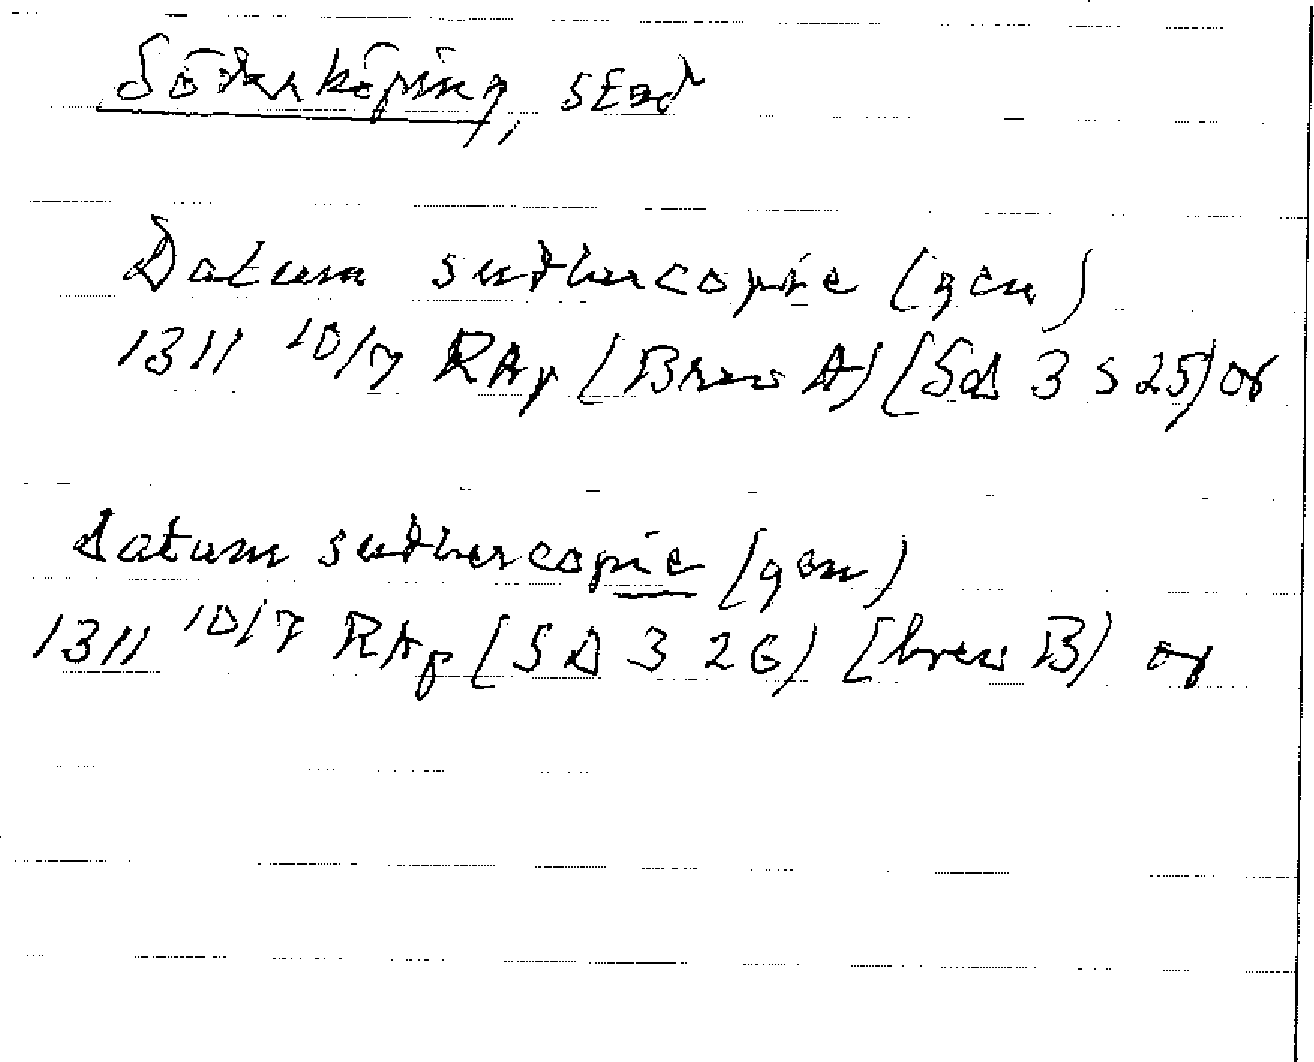 Söderköping, stad
Datum suthercopie (gen)
1311 10/7 RAp (Brev A) (SD 3 s 25) or
datum suthercopie (gen)
1311 10/7 RAp (SD 3 26) (brev B) or